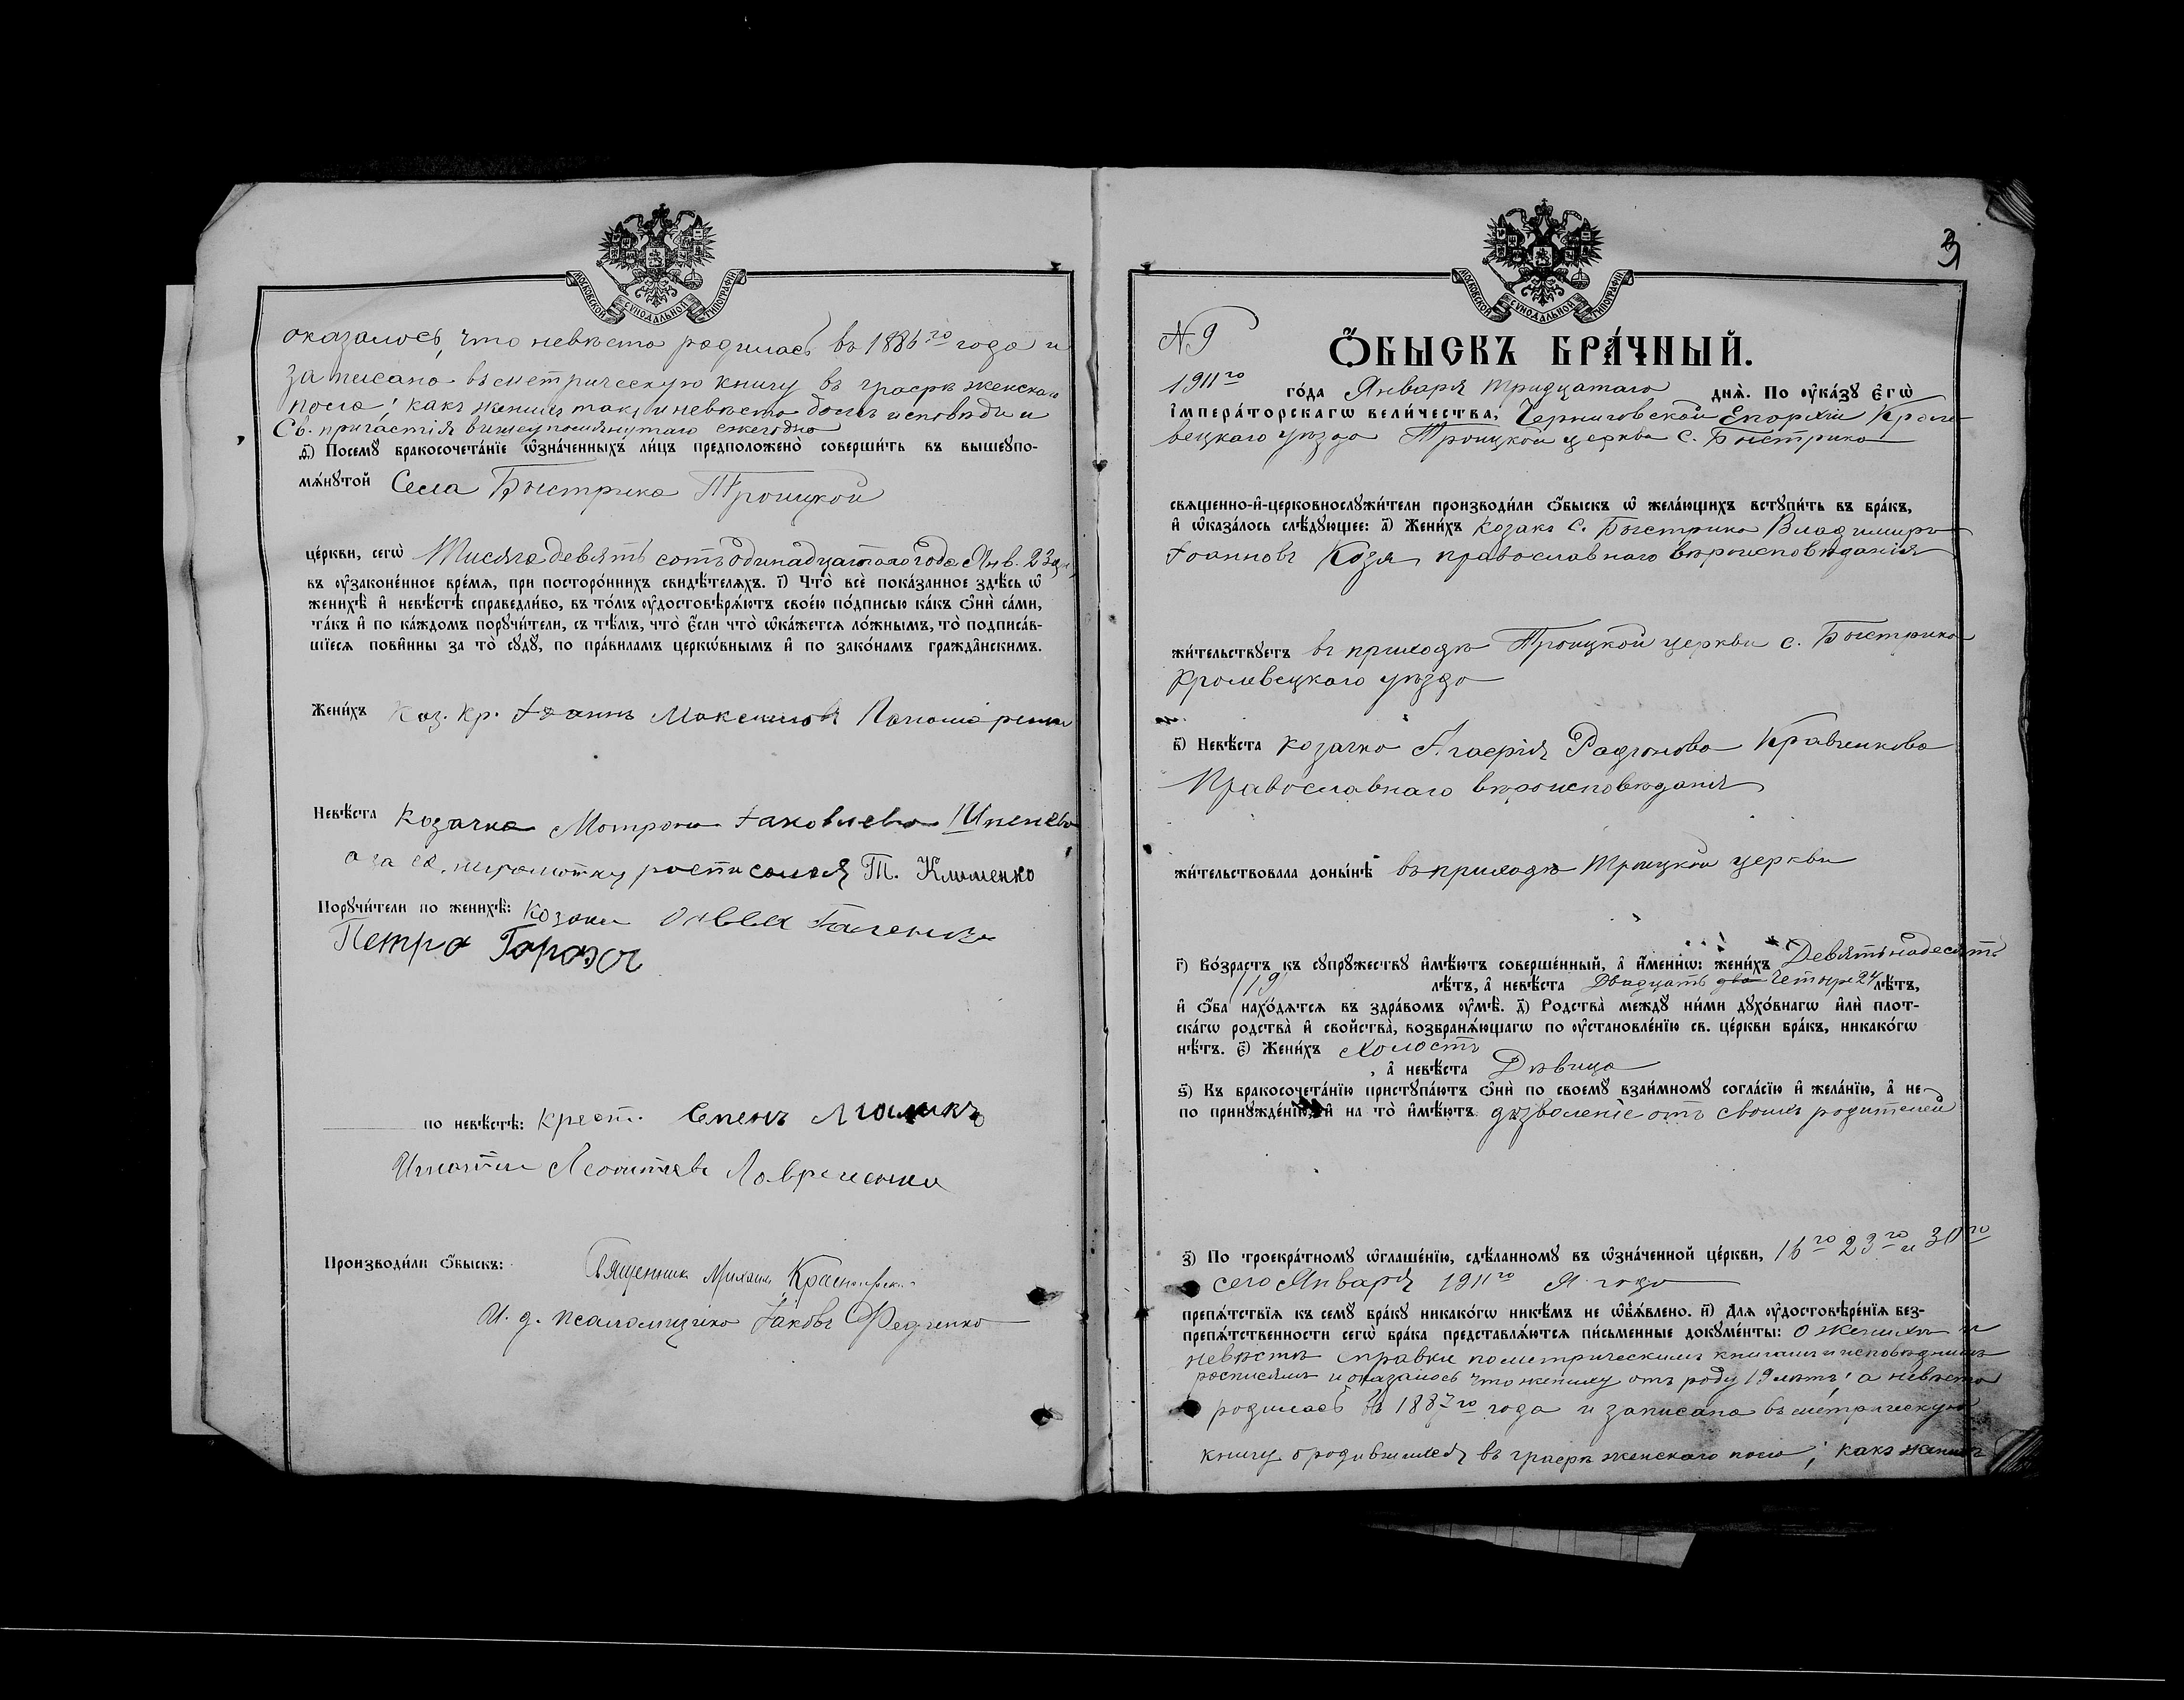 МОСКОВСКОЙ СѴНОДАЛЬНОЙ ТИПОГРАФІИ
оказалось, что невѣста родилась въ 1886го года и
записана въ метрическую книгу въ графѣ женскаго
пола; какъ женихъ такъ и невѣста были исповѣди и
Св. причастія вышеупомянутаго ежегодно
д҃) Посемꙋ бракосочета́нїе ѡ҆зна́ченныхъ ли́цъ предположено̀ соверши́ть въ вышеꙋпо-
мѧ́нꙋтой Села Быстрика Троицкой
це́ркви, сегѡ̀ Тисяча девять сотъ одинадцатого года Янв. 23 дня,
въ ᲂу҆зако́ненное вре́мѧ, при посторо́ннихъ свидѣ́телѧхъ. і҃) Что̀ всѐ пока́занное здѣ́сь ѡ҆
женихѣ̀ и҆ невѣ́стѣ справедли́во, въ то́мъ ᲂу҆достовѣрѧ́ютъ свое́ю по́дписью ка́къ ѻ҆нѝ са́ми,
та́къ и҆ по ка́ждомъ порꙋчи́тели, съ тѣ́мъ, что̀ є҆́сли что̀ ѡ҆ка́жетсѧ ло́жнымъ, то̀ подписа́в-
шїесѧ пови́нны за то̀ сꙋдꙋ̀, по пра́виламъ церко́внымъ и҆ по зако́намъ гражда̑нскимъ.
Жени́хъ Коз. Кр. Іоаннъ Максимовъ
Невѣ́ста Козачка Мотрона Іаковлева
а за ея неграмотную росписался Т. Клименко
Порꙋчи́тели по женихѣ̀: Козаки
Петро
по невѣ́стѣ: Крест. Семенъ
Игнатій Леонтіевъ Лавриненко
Производи́ли ѻ҆́быскъ: Священник Михаилъ
И. д. псаломщика Іаковъ Федченко
3
МОСКОВСКОЙ СѴНОДАЛЬНОЙ ТИПОГРАФІИ
N 9
Ѻ҆́БЫСКЪ БРА́ЧНЫЙ.
1911го го́да Января тридцатаго днѧ̀. По ᲂу҆ка́зꙋ є҆гѡ̀
і҆мпера́торскагѡ вели́чества, Черниговской Епархіи Кроле-
вецкаго уѣзда Троицкой церкви с. Быстрика
свѧще́нно-и҆-церковнослꙋжи́тели производи́ли ѻ҆́быскъ ѡ҆ жела́ющихъ встꙋпи́ть въ бра́къ,
и҆ ѡ҆каза́лось слѣ́дꙋющее: а҃) Жени́хъ козакъ с. Быстрика Владимиръ
Іоанновъ Козя, православнаго вѣроисповѣданія
жи́тельствꙋетъ въ приходѣ Троицкой церкви с. Быстрика
Кролевецкаго уѣзда
в҃) Невѣ́ста козачка Агафія Радіонова Кравченкова
Православнаго вѣроисповѣданія
жи́тельствовала доны́нѣ въ приходѣ Троицкой церкви
г҃) Во́зрастъ къ сꙋпрꙋ́жествꙋ и҆мѣ́ютъ соверше́нный, а҆ и҆́меннѡ: жени́хъ Девятьнадесять
/19/ лѣ́тъ, а҆ невѣ́ста Двадцать два четыре 24 лѣ́тъ,
и҆ ѻ҆́ба нахо́дѧтсѧ въ здра́вомъ ᲂу҆мѣ̀. д҃) Родства̀ междꙋ̀ ни́ми дꙋхо́внагѡ и҆лѝ плот-
ска́гѡ родства̀ и҆ свойства̀, возбранѧ́ющагѡ по ᲂу҆становле́нїю св. це́ркви бра́къ, никако́гѡ
нѣ́тъ. є҃) Жени́хъ холостъ
, а҆ невѣ́ста Дѣвица
ѕ҃) Къ бракосочета́нїю пристꙋпа́ютъ ѻ҆нѝ по своемꙋ̀ взаи́мномꙋ согла́сїю и҆ жела́нїю, а҆ не
по принꙋжде́нїю, и҆ на то̀ и҆мѣ́ютъ дозволеніе отъ своихъ родителей
з҃) По троекра́тномꙋ ѡ҆глаше́нїю, сдѣ́ланномꙋ въ ѡ҆зна́ченной це́ркви, 16го 23го и 30го
сего Января 1911го года
препѧ́тствїѧ къ семꙋ̀ бра́кꙋ никако́гѡ никѣ́мъ не ѡ҆б̾ѧ́влено. и҃) Длѧ ᲂу҆достовѣре́нїѧ без-
препѧ́тственности сегѡ̀ бра́ка представлѧ́ютсѧ пи́сьменные докꙋме́нты: о женихѣ и
невѣстѣ справки по метрическимъ книгамъ и исповѣднымъ
росписямъ и оказалось что жениху отъ роду 19 лѣтъ; а невѣста
родилась въ 1887го года и записана въ метрическую
книгу о родившихся въ графѣ женскаго пола; какъ женихъ